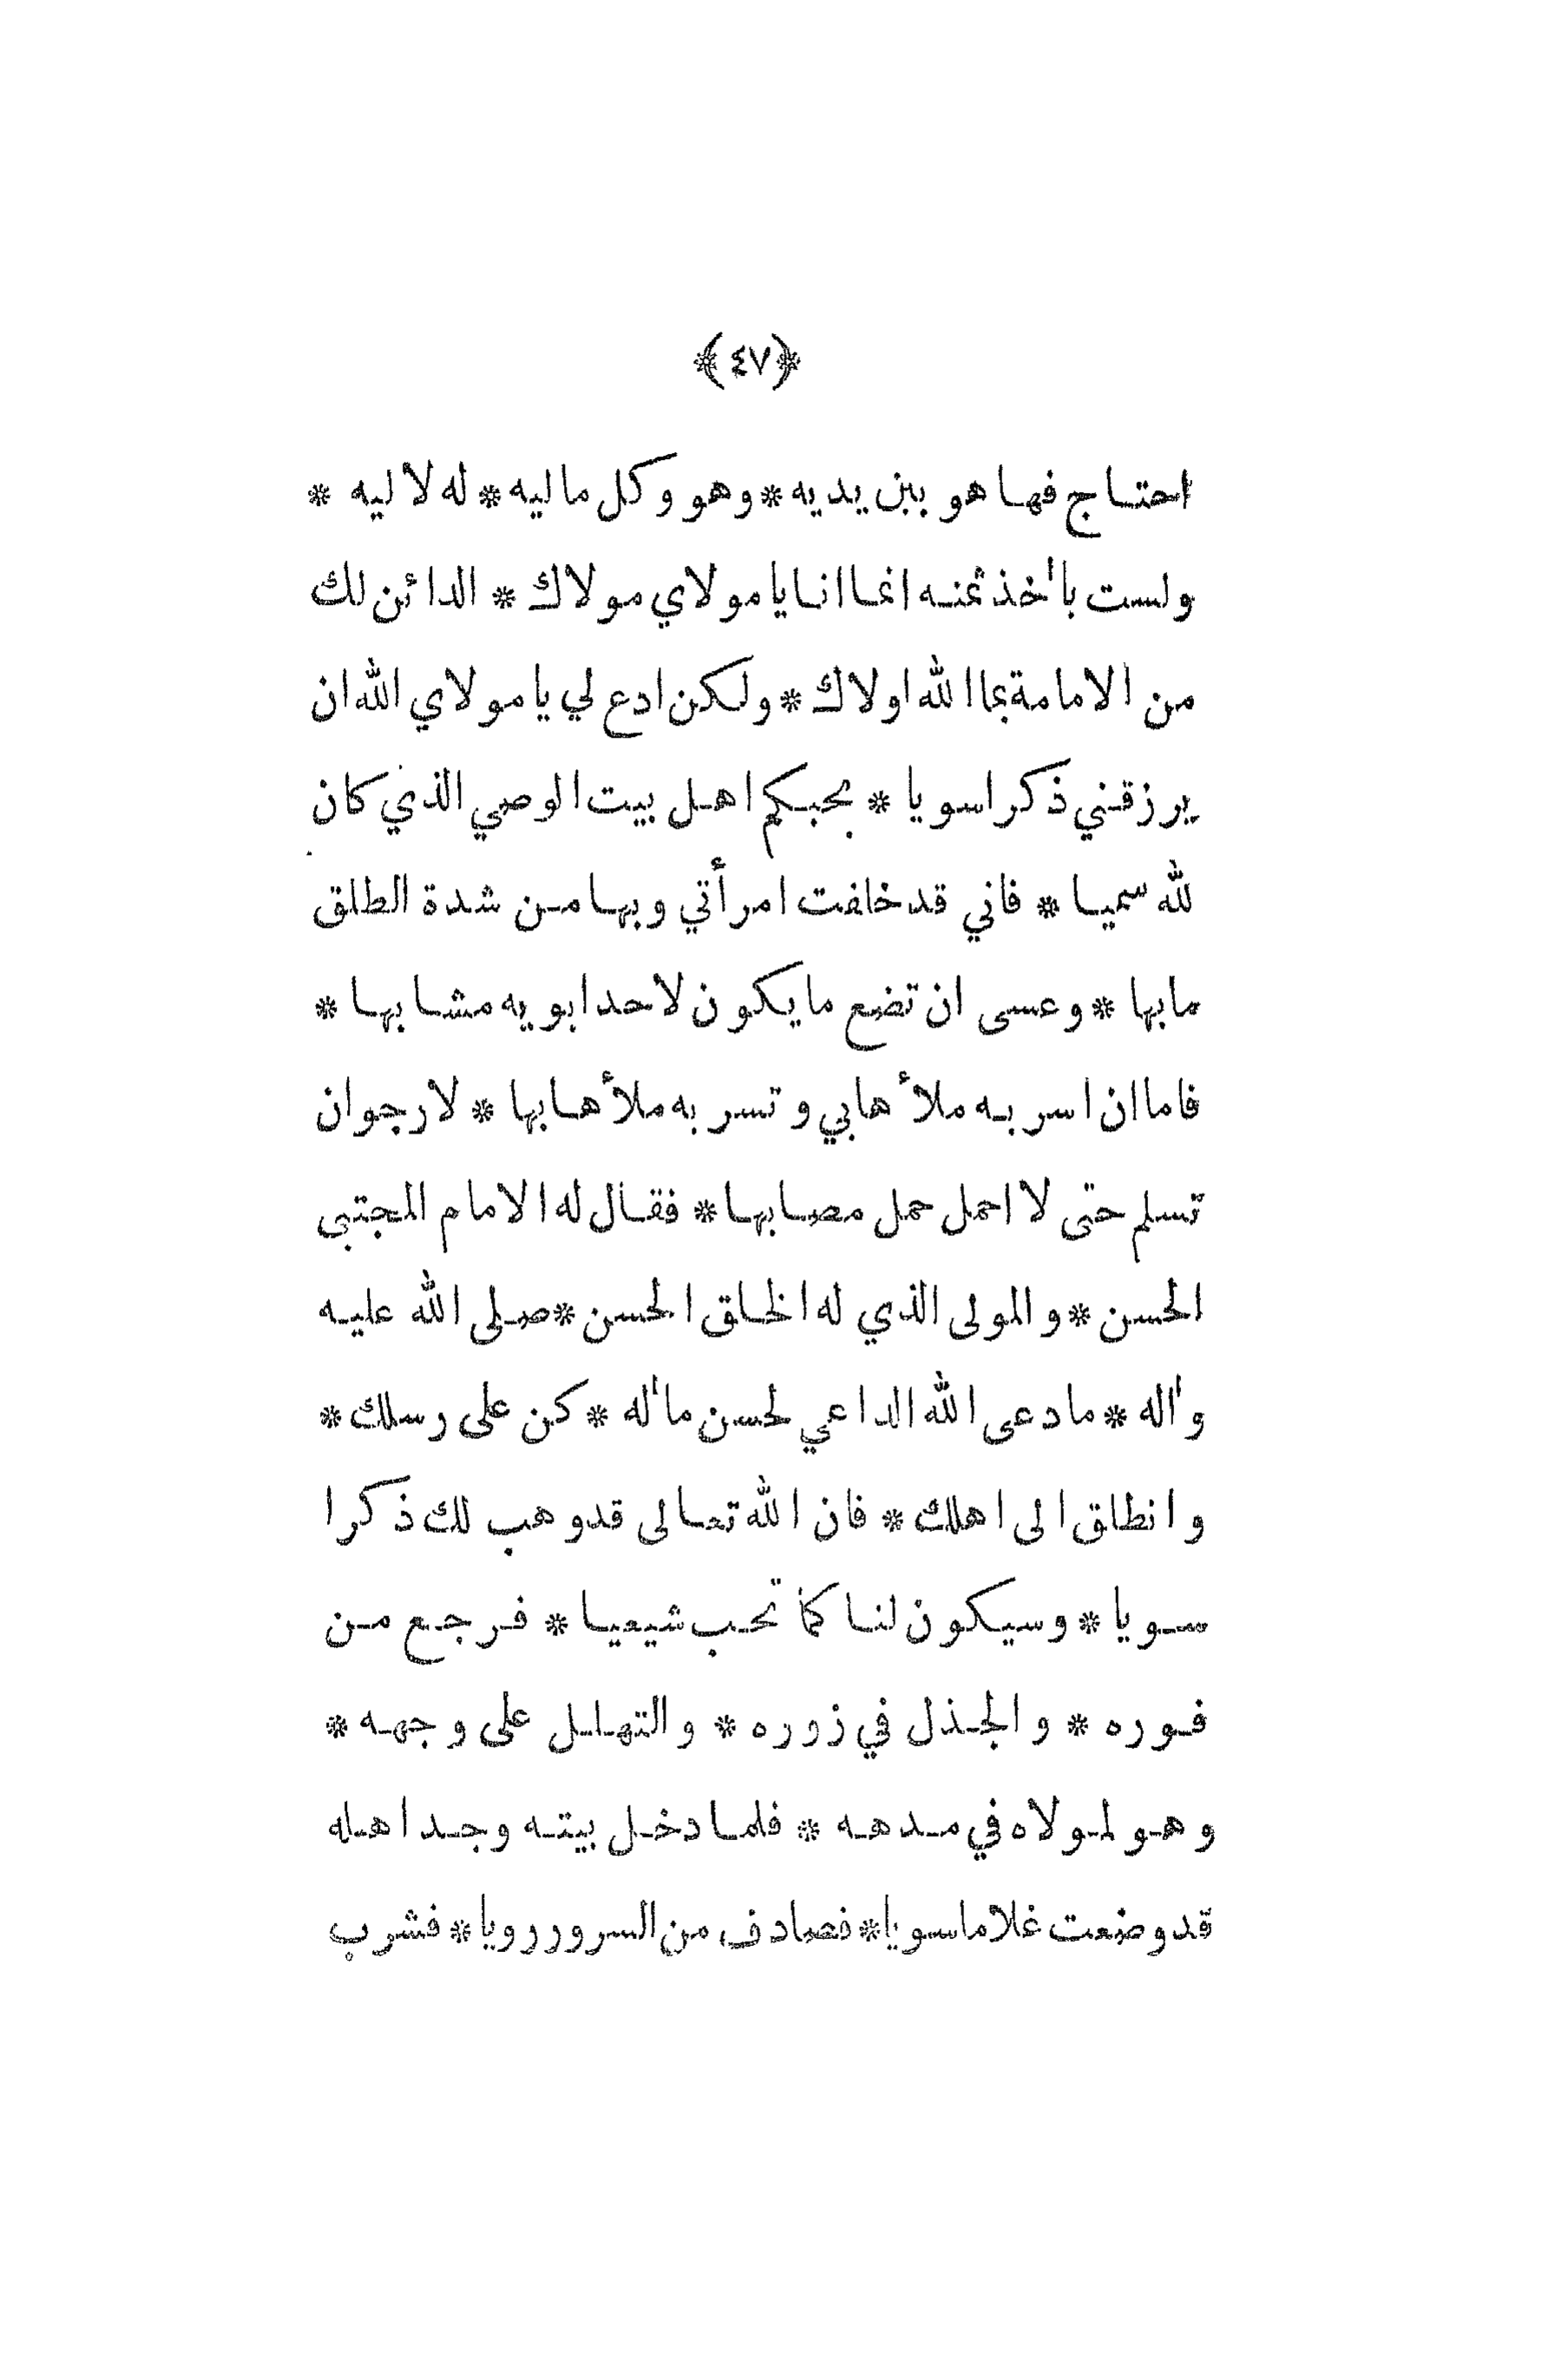 ﴿٤٧﴾
احتاج فها هو بين يديه * وهو وكل ما ليه * له لا ليه *
ولست بآخذ ثمنه انما انا يا مولاي مولاك * الدائن لك
من الامامة بما الله اولاك * ولكن ادع لي يا مولاي الله ان
يرزقني ذكرا سويا * بحبكم اهل بيت الوصي الذي كان
لله سميا * فاني قد خلفت امرأتي وبها من شدة الطلق
ما بها * وعسى ان تضع ما يكون لاحد ابويه مشابها *
فاما ان اسر به ملأ هابي وتسر به ملأ هابها * لارجو ان
تسلم حتى لا احمل حمل مصابها * فقال له الامام المجتبى
الحسن * والمولى الذي له الخلق الحسن * صلى الله عليه
وآله * ما دعى الله الداعي لحسن مآله * كن على رسلك *
وانطلق الى اهلك * فان الله تعالى قد وهب لك ذكرا
سويا * وسيكون لنا كما تحب شيعيا * فرجع من
فوره * والجذل في زوره * والتهلل على وجهه *
وهو لمولاه في مدهه * فلما دخل بيته وجد اهله
قد وضعت غلاما سويا * فصادف من السرور رويا * فشرب